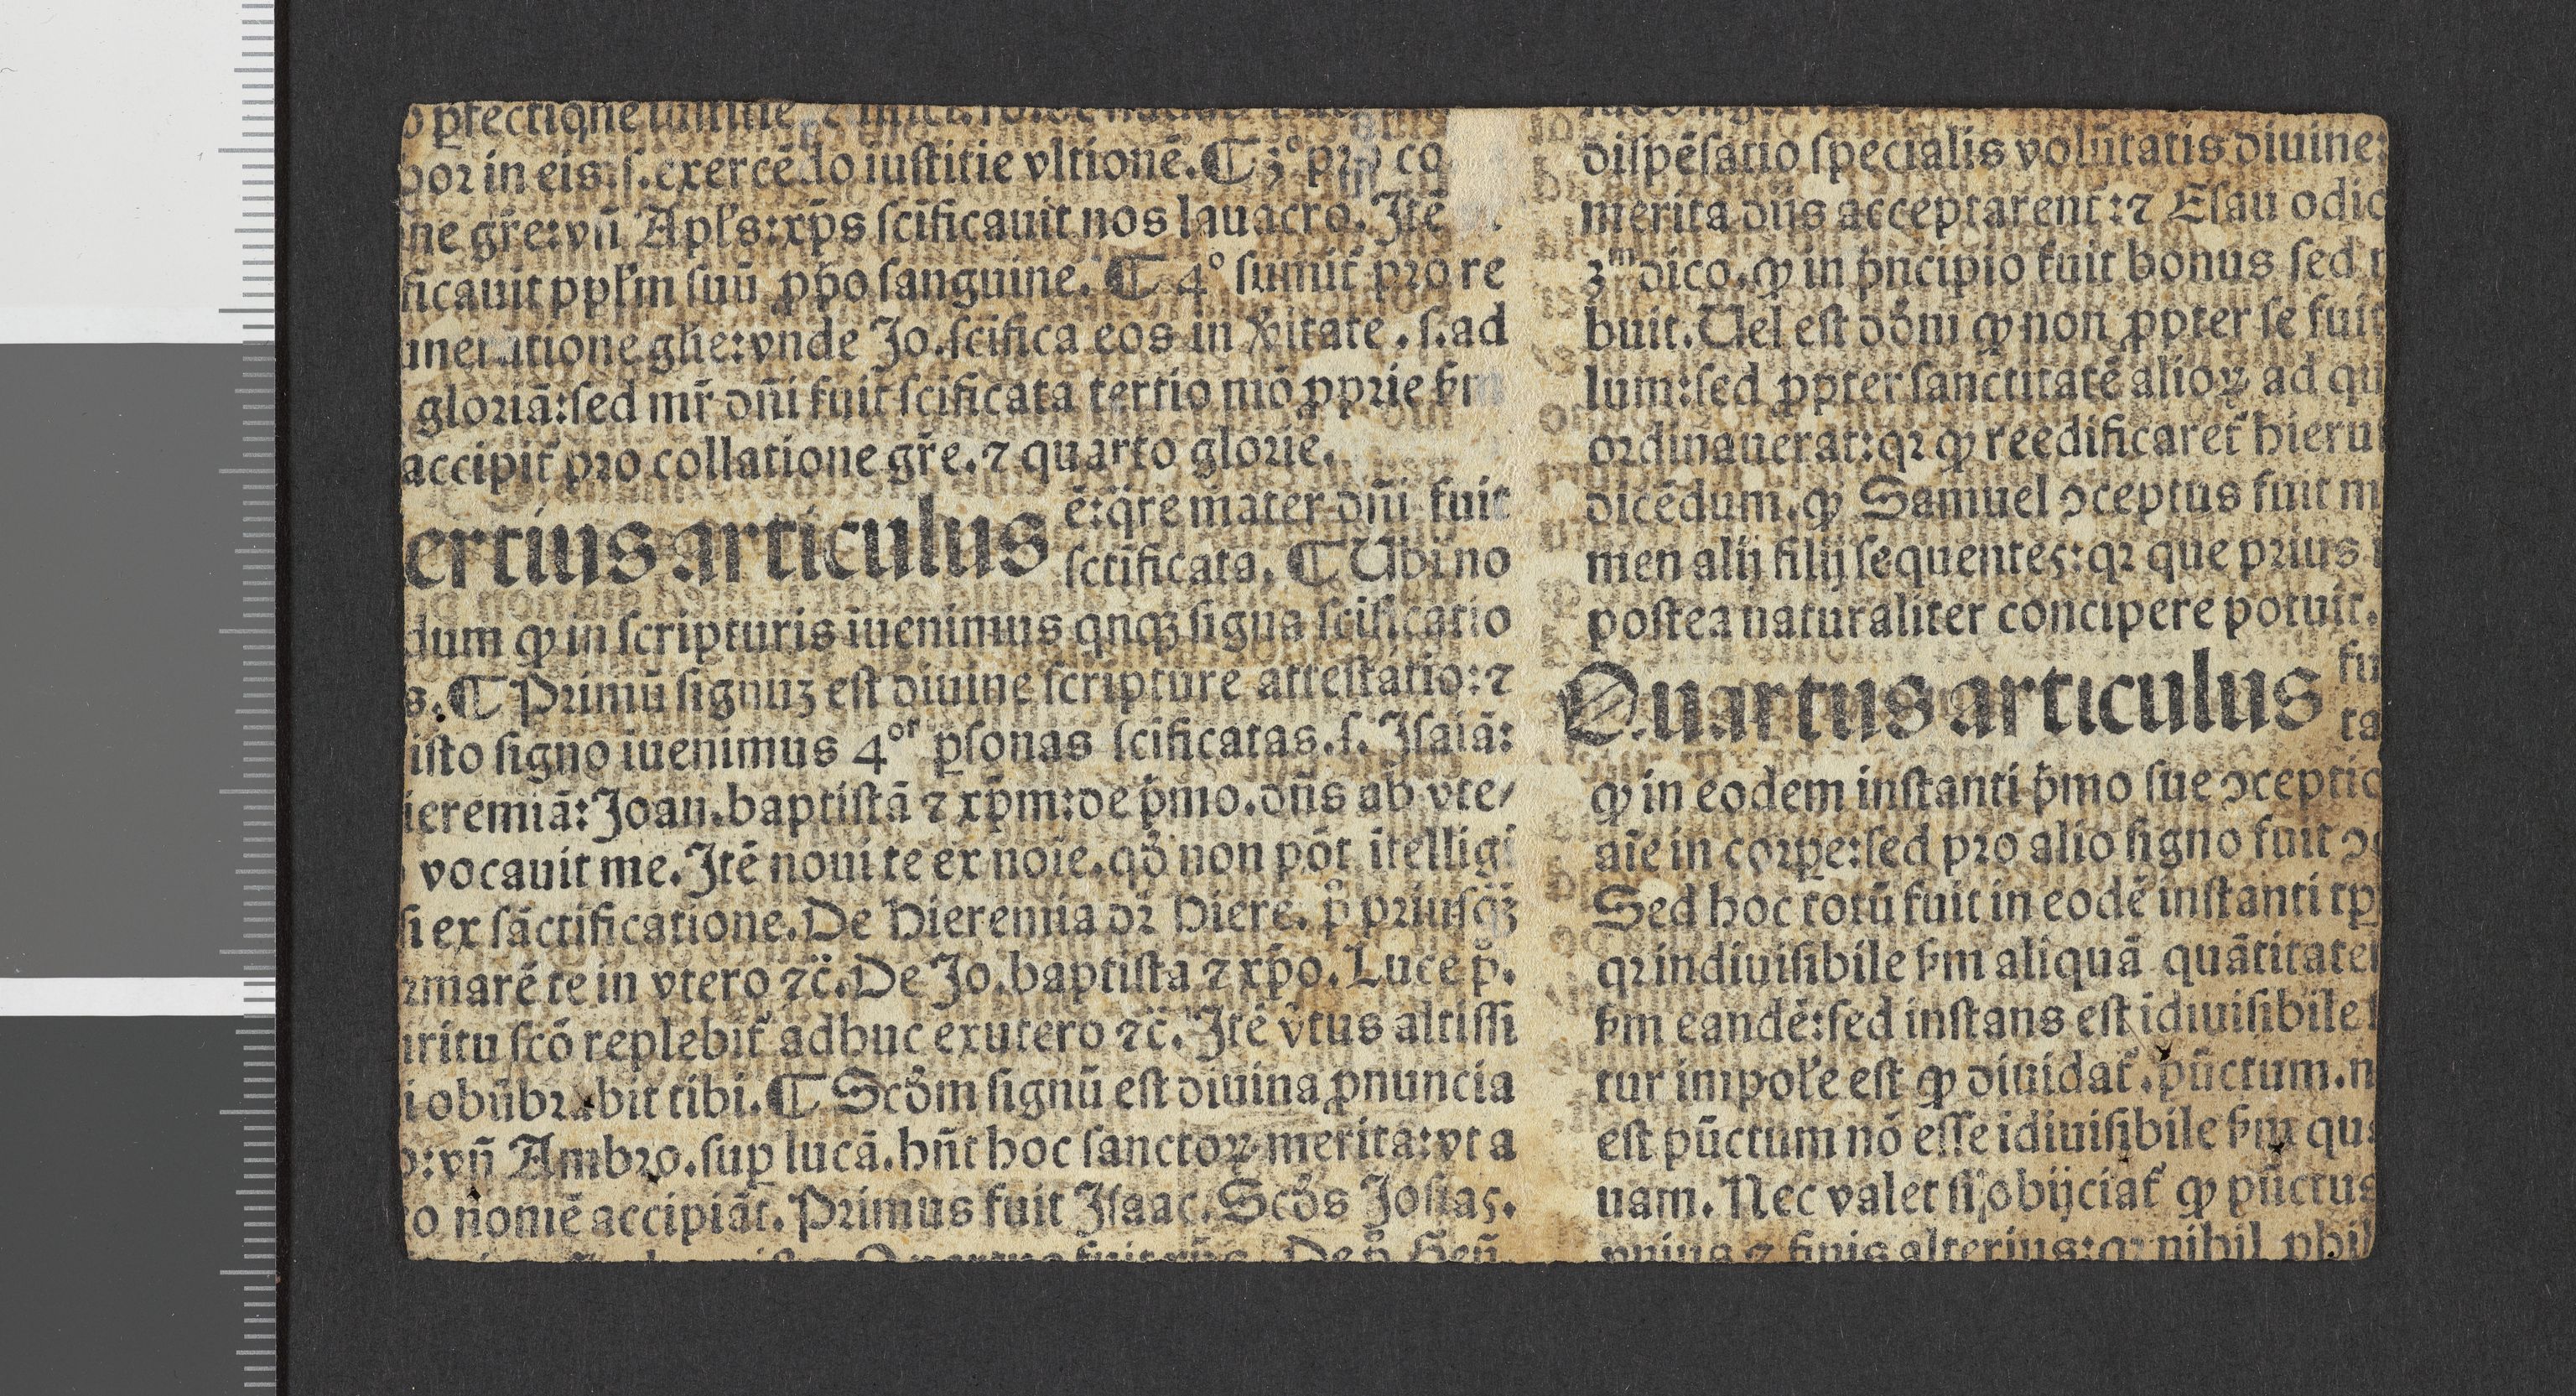 ꝓfectione iustitie
bor in eis:.s.exercēdo iustitie vltionē.¶ 3° pro co
ne gr̄e:vñ Apl's:xp̄s scīficauit nos lauacro. Itē
ficauit ppl'm suū ꝓp̄o sanguine. ¶ 4° sumit̄ pro re
glīe:vnde Jo.scīfica eos in v̄itate .s.ad
gloriā:sed mr̄ dn̄i fuit scīficata tertio mō ꝓprie
accipit̄ pro collatione gr̄e.⁊ quarto glorie.
ertius articulus ē:q̄re mater dn̄i fuit
sctīficata. ¶ Ubi no
dum ꝙ in scripturis īuenimus qnqꝫ signa scīficatio
s.¶ Primū signuꝫ est diuine scripture attestatio:⁊
isto signo īuenimus 4ᵒʳ ꝑsonas scīficatas.s. Isaiā:
ieremiā:Joan.baptistā ⁊ xp̄m:de p̄mo.dn̄s ab vte/
vocauit me. Itē noui te ex noīe.qd̄ non pōt ītelligi
si ex sāctificatione. De Hieremia dr̄ Hiere. p̄ priusqꝫ̄
rmarē te in vtero ⁊c̄. De Jo.baptista ⁊ xp̄o. Luce p̄.
iritu scō replebit̄ adhuc exutero ⁊c̄. Itē v̄tus altissi
i obūbrabit tibi.¶ Scd̄m signū est diuina ꝓnuncia
o:vñ Ambro.suꝑ lucā.hn̄t hoc sanctoꝝ merita:vt a
o nomē accipiāt. Primus fuit Isaac. Scd̄s Josias.
fuit xp̄s. De p̄. Gen̄
dispēsatio specialis volūtatis diuine:
merita dn̄s acceptarent:⁊ Esau odio
3ᵐ dico.ꝙ in p̄ncipio fuit bonus sed
buit.Uel est dd̄m ꝙ non ꝓpter se fuit
lum:sed ꝓpter sanctitatē alioꝝ ad qu
ordinauerat:qꝛ ꝙ reedificaret̄ hieru
dicēdum.ꝙ Samuel ↄceptus fuit m
men alij filij sequentes:qꝛ que prius
postea naturaliter concipere potuit.
Quartus articulus fu
ta
ꝙ in eodem instanti p̄mo sue ↄceptio
aīe in corꝑe:sed pro alio signo fuit ↄ
Sed hoc totū fuit in eodē instanti tꝑ
qꝛ indiuisibile ẜm aliquā quātitatem
ẜm eandē:sed instans est īdiuisibile
tur impol'e est ꝙ diuidat̄.pūctum.n
est pūctum nō esse īdiuisibile ẜm qua
uam. Nec valet si obijciat̄ ꝙ pūctus
vnius ⁊ finis alterius:qꝛ nihil phil